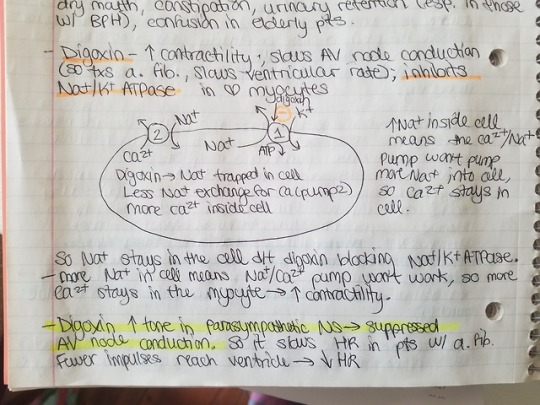 dry mouth, constipation, urinary retention (esp. in those
w/ BPH), confusion in elderly pts.
- Digoxin - ↑ contractility, slows AV node conduction
(so txs a. fib., slows ventricular rate), inhibits
Na+/K+ ATPase in ♡ myocytes
digoxin
Na+ K+
2 Na+ 1
Ca2+ ATP
Digoxin → Na+ trapped in cell
Less Na+ exchange for Ca (pump 2)
more Ca2+ inside cell
↑Na+ inside cell
means the Ca2+/Na+
pump won't pump
more Na+ into cell,
so Ca2+ stays in
cell.
So Na+ stays in the cell d/t digoxin blocking Na+/K+ ATPase.
- more Na+ in cell means Na+/Ca2+ pump won't work, so more
Ca2+ stays in the myocyte → ↑ contractility.
- Digoxin ↑ tone in parasympathetic NS → suppressed
AV node conduction. So it slows HR in pts w/ a. fib.
Fewer impulses reach ventricle → ↓ HR